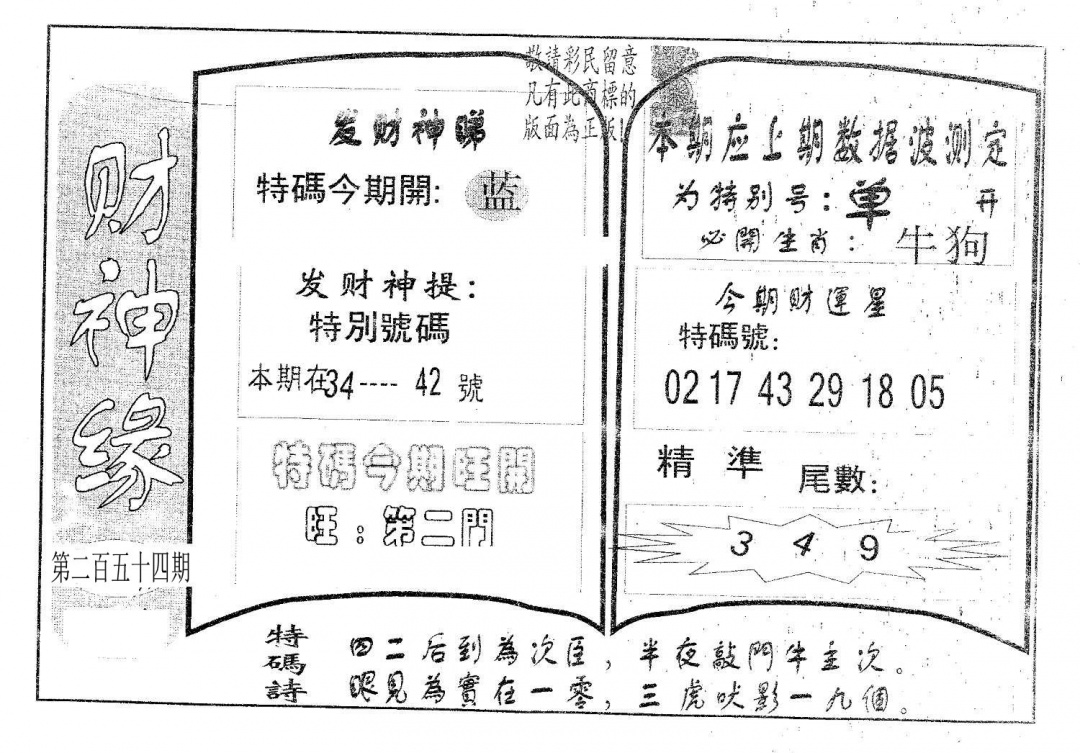 财神缘
第二百五十四期
敬請彩民留意
凡有此商標的
版面為正版!
发财神睇
特碼今期開: 蓝
发财神提:
特別號碼
本期在34----42號
特碼今期旺開
旺:第二門
本期应上期数据波测定
为特别号:单 开
必開生肖: 牛狗
今期财運星
特碼號:
02 17 43 29 18 05
精準 尾數:
3 4 9
特碼詩
四二后到為次臣,半夜敲門牛主次。
眼見為實在一零,三虎吠影一九個。